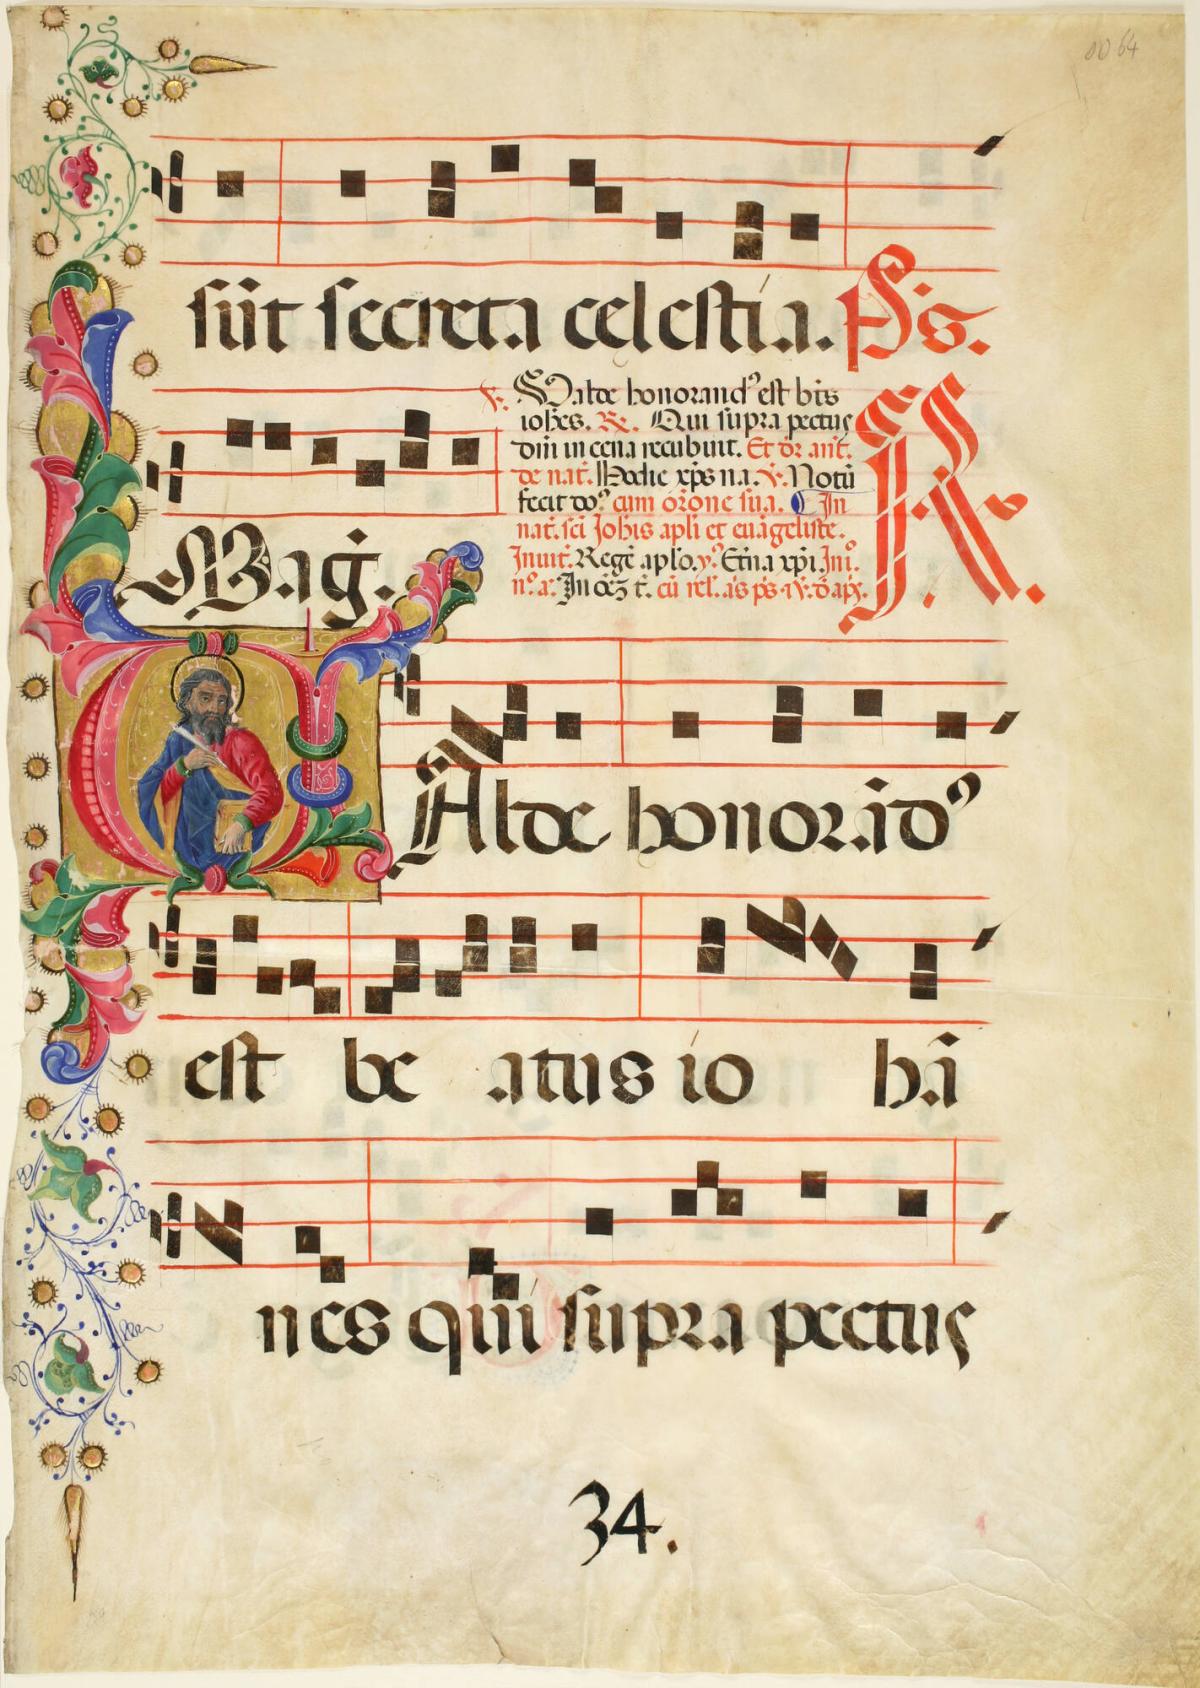 00 64
sũt secreta celestia. Ps.
℣. Valde honorand⁹ est btũs
ioh̃es. ℟. Qui supra pectus
dñi in cena recubuit. Et dr̃ ant̃.
de nat̃. Hodie xp̃s na. ℣. Notũ
fecit do⁹ cum or̃one sua. In
nat̃. sc̃i Joh̃is apl̃i et euãgeliste.
Inuit̃. Regẽ aplo. y⁹. Etr̃na xp̃i. In .i⁹.
n⁹. a. In oẽʒ t̃. cũ rel. ãs p̃s
Mag̃. R.
VAlde honorãd⁹
est be atus io hã
nes qui supra pectus
34.